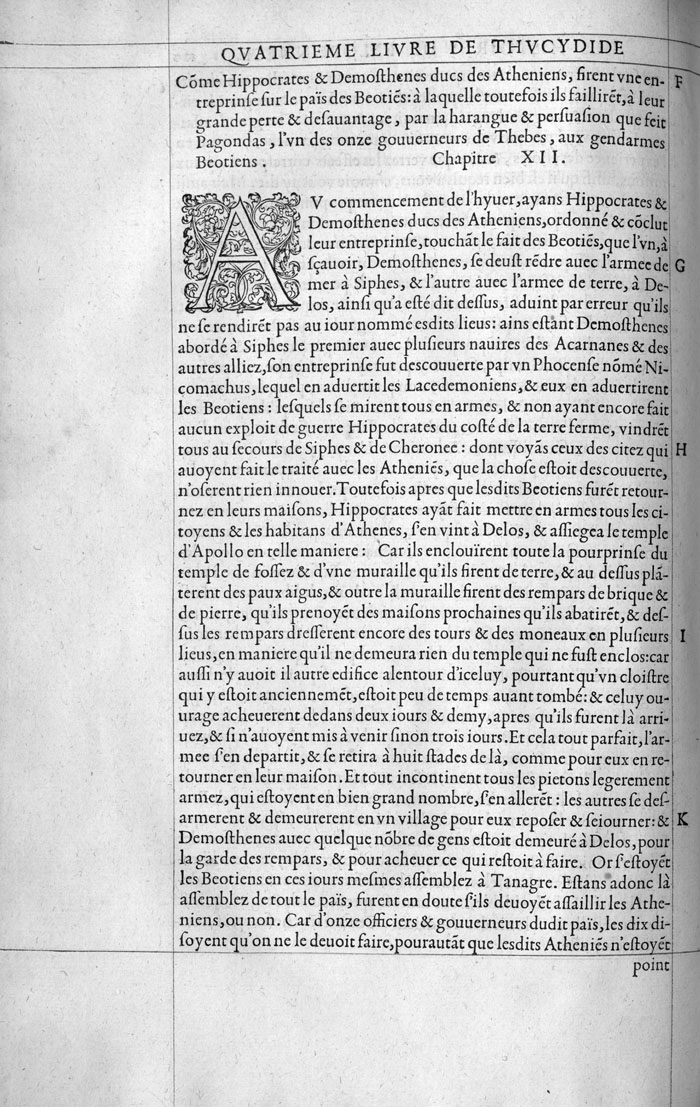 QVATRIEME LIVRE DE THVCYDIDE
Cõme Hippocrates & Demosthenes ducs des Atheniens, firent vne en- F
treprinſe ſur le païs des Beotiẽs: à laquelle toutefois ils faillirẽt, à leur
grande perte & deſauantage, par la harangue & perſuaſion que feit
Pagondas, l'vn des onze gouuerneurs de Thebes, aux gendarmes
Beotiens. Chapitre XII.
AV commencement de l'hyuer, ayans Hippocrates &
Demoſthenes ducs des Atheniens, ordonné & cõclut
leur entreprinſe, touchãt le fait des Beotiẽs, que l'vn, à
ſçauoir, Demoſthenes, ſe deuſt rẽdre auec l'armee de G
mer à Siphes, & l'autre auec l'armee de terre, à De-
los, ainſi qu'a eſté dit deſſus, aduint par erreur qu'ils
ne ſe rendirẽt pas au iour nommé eſdits lieus: ains eſtãnt Demoſthenes
abordé à Siphes le premier auec pluſieurs nauires des Acarnanes & des
autres alliez, ſon entreprinſe fut deſcouuerte par vn Phocenſe nõmé Ni-
comachus, lequel en aduertit les Lacedemoniens, & eux en aduertirent
les Beotiens: leſquels ſe mirent tous en armes, & non ayant encore fait
aucun exploit de guerre Hippocrates du coſté de la terre ferme, vindrẽt
tous au ſecours de Siphes & de Cheronee: dont voyãs ceux des citez qui H
auoyent fait le traité auec les Atheniẽs, que la choſe eſtoit deſcouuerte,
n'oſerent rien innouer. Toutefois apres que leſdits Beotiens furẽt retour-
nez en leurs maiſons, Hippocrates ayãt fait mettre en armes tous les ci-
toyens & les habitans d'Athenes, ſ'en vint à Delos, & aſſiegea le temple
d'Apollo en telle maniere: Car ils enclouïrent toute la pourprinſe du
temple de foſſez & d'vne muraille qu'ils firent de terre, & au deſſus plã-
terent des paux aigus, & outre la muraille firent des rempars de brique &
de pierre, qu'ils prenoyẽt des maiſons prochaines qu'ils abatirẽt, & deſ-
ſus les rempars dreſſerent encore des tours & des moneaux en pluſieurs I
lieus, en maniere qu'il ne demeura rien du temple qui ne fuſt enclos: car
auſſi n'y auoit il autre edifice alentour d'iceluy, pourtant qu'vn cloiſtre
qui y eſtoit anciennemẽt, eſtoit peu de temps auant tombé: & celuy ou-
urage acheuerent dedans deux iours & demy, apres qu'ils furent là arri-
uez, & ſi n'auoyent mis à venir ſinon trois iours. Et cela tout parfait, l'ar-
mee ſ'en departit, & ſe retira à huit ſtades de là, comme pour eux en re-
tourner en leur maiſon. Et tout incontinent tous les pietons legerement
armez, qui eſtoyent en bien grand nombre, ſ'en allerẽt: les autres ſe deſ-
armerent & demeurerent en vn village pour eux repoſer & ſeiourner: & K
Demoſthenes auec quelque nõbre de gens eſtoit demeuré à Delos, pour
la garde des rempars, & pour acheuer ce qui reſtoit à faire. Or ſ'eſtoyẽt
les Beotiens en ces iours meſmes aſſemblez à Tanagre. Eſtans adonc là
aſſemblez de tout le païs, furent en doute ſ'ils deuoyẽt aſſaillir les Athe-
niens, ou non. Car d'onze officiers & gouuerneurs dudit païs, les dix di-
ſoyent qu'on ne le deuoit faire, pourautãt que leſdits Atheniẽs n'eſtoyẽt
point